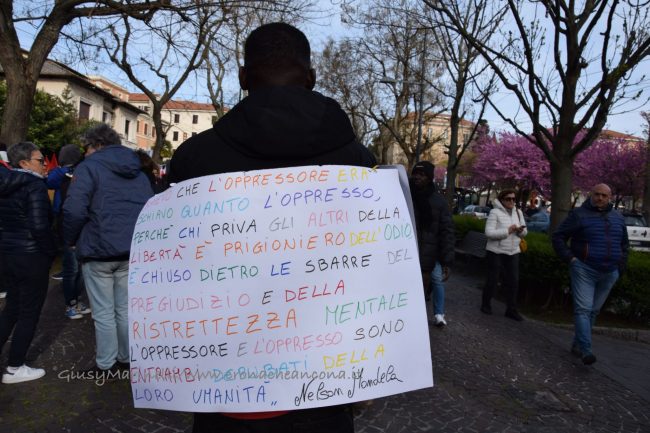 CHE L'OPPRESSORE ERA
SCHIAVO QUANTO L'OPPRESSO,
PERCHÈ CHI PRIVA GLI ALTRI DELLA
LIBERTÀ È PRIGIONIERO DELL'ODIO
È CHIUSO DIETRO LE SBARRE DEL
PREGIUDIZIO E DELLA
RISTRETTEZZA MENTALE
L'OPPRESSORE E L'OPPRESSO SONO
ENTRAMBI DEPRIVATI DELLA
LORO UMANITÀ,,
Nelson Mandela